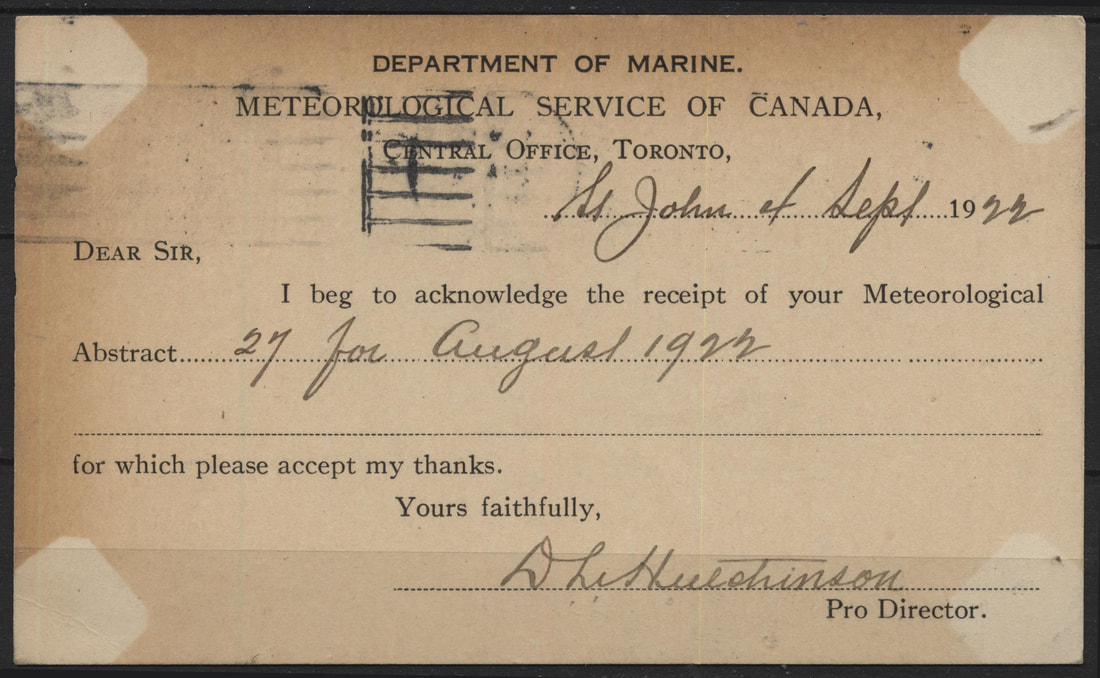 DEPARTMENT OF MARINE.
METEOROLOGICAL SERVICE OF CANADA,
CENTRAL OFFICE, TORONTO,
St John 4 Sept 1922
DEAR SIR,
I beg to acknowledge the receipt of your Meteorological
Abstract 27 for August 1922
for which please accept my thanks.
Yours faithfully,
D L Hutchinson
Pro Director.